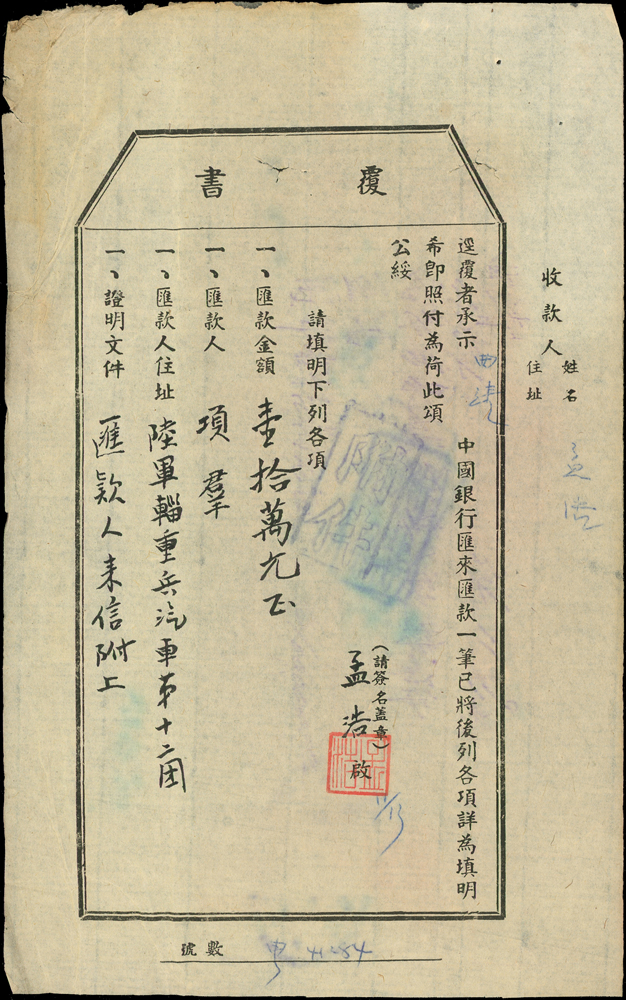 收款人 姓名 孟浩
住址
覆書
逕覆者承示 曲靖 中國銀行匯來匯款一筆已將後列各項詳為填明
希卽照付為荷此頌
公綏
(請簽名蓋章)
孟浩 啟
11/13
請填明下列各項
一、匯款金額 壹拾萬元正
一、匯款人 項羣
一、匯款人住址 陸軍輜重兵汽車第十二团
一、證明文件 匯款人来信附上
附件
號數